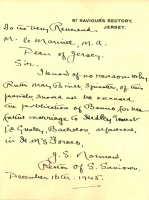 ST SAVIOUR'S RECTORY,
JERSEY.
To the Very Reverend
M. Le Marinel, M.A.
Dean of Jersey.
Sir,
I know of no reason why
Ruth May Binet, Spinster, of this
parish should not be
the publication of Banns for her
future marriage to Hedley Ernest
Bachelor,
in H.M's Forces.
J.S. Norman,
Rector of S. Saviour
December 18th, 1945.